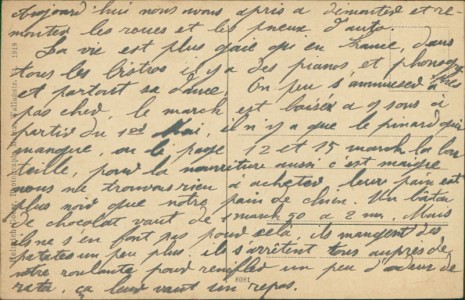 Aujourd'hui nous avons apris a démonter et re-
monter les roues et les pneux d'auto.
La vie est plus gaie qu'en France, dans
tous les bistros il y a des pianos et phonog
et partout sa danse. On peu s'ammuser très
pas cher, le march est baissé a 9 sous à
partir du 1er Mai, il n'y a que le pinard qui
manque, on le paye 12 et 15 march la bou
teille, pour la nourriture aussi c'est maigre
nous ne trouvons rien a acheter, leur pain est
plus noir que notre pain de chien. Un bâton
de chocolat vaut de 1 march 50 a 2 m. Mais
ils ne s'en font pas pour cela, ils mangent des
patates un peu plus. ils s'arrêtent tous auprès de
notre roulante pour renifler un peu d'odeur de
rata, ça leur vaut un repos.
6081
1919